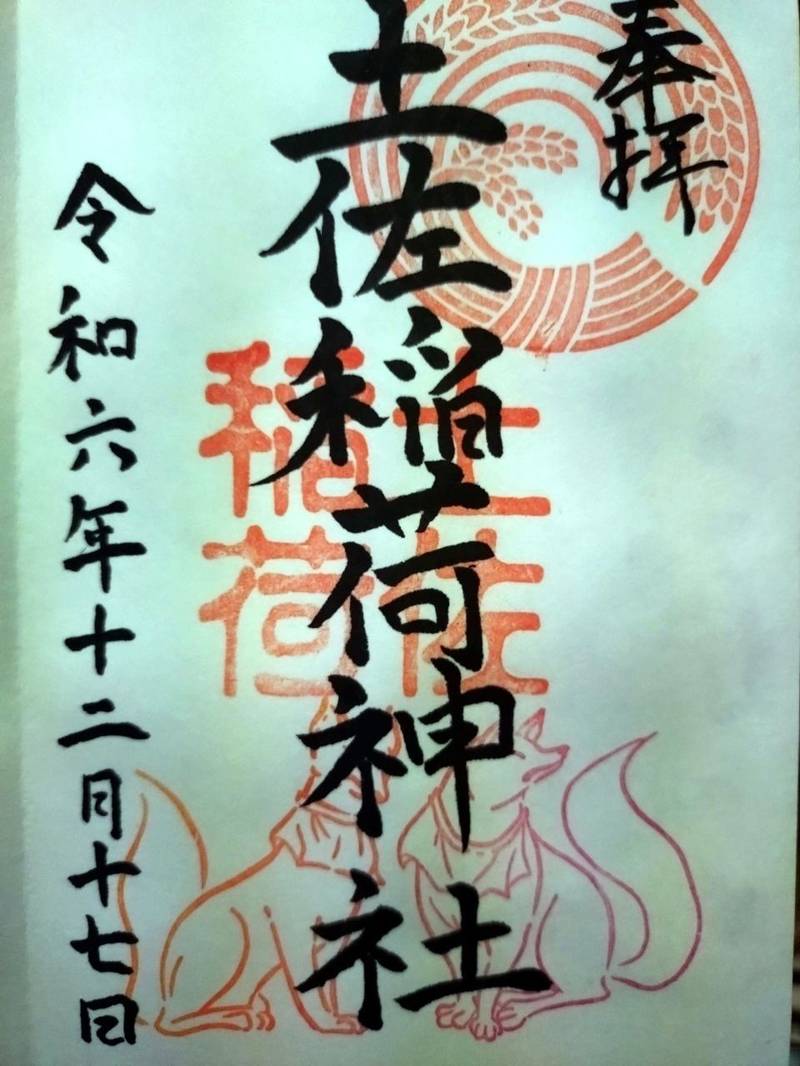 奉拝
土佐稲荷神社
土佐
稲荷
令和六年十二月十七日